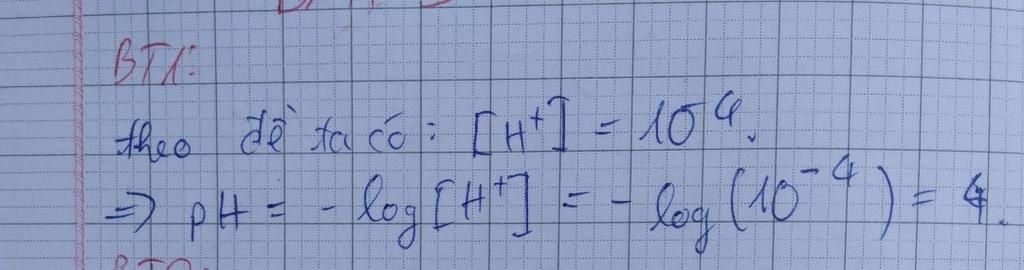 BT1:
theo đề ta có: [H⁺] = 10⁴.
=> pH = - log[H⁺] = - log(10⁻⁴) = 4.